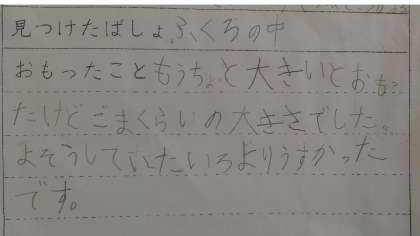 見つけたばしょ ふくろの中
おもったこと もうちょっと大きいとおもっ
たけどごまくらいの大きさでした。
よそうしていたいろよりうすかった
です。